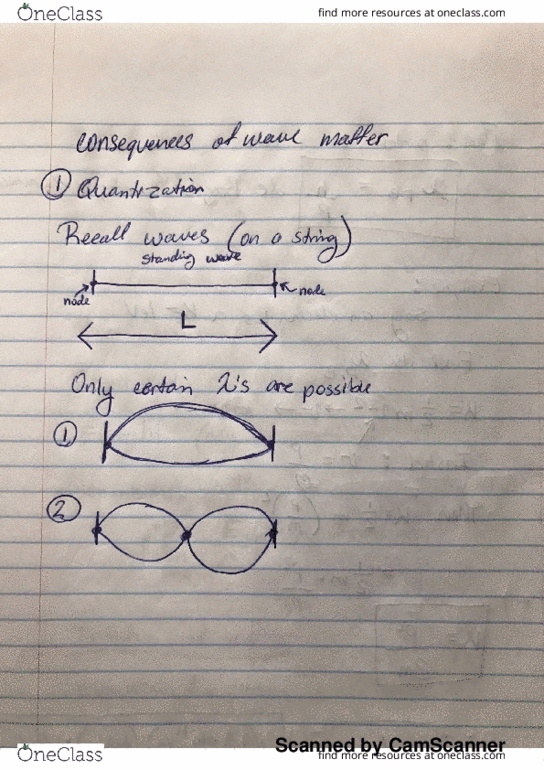 OneClass
find more resources at oneclass.com
Consequences of wave matter
① Quantization
Recall waves (on a string)
standing wave
node
node
L
Only certain λ's are possible
①
②
Scanned by CamScanner
OneClass
find more resources at oneclass.com